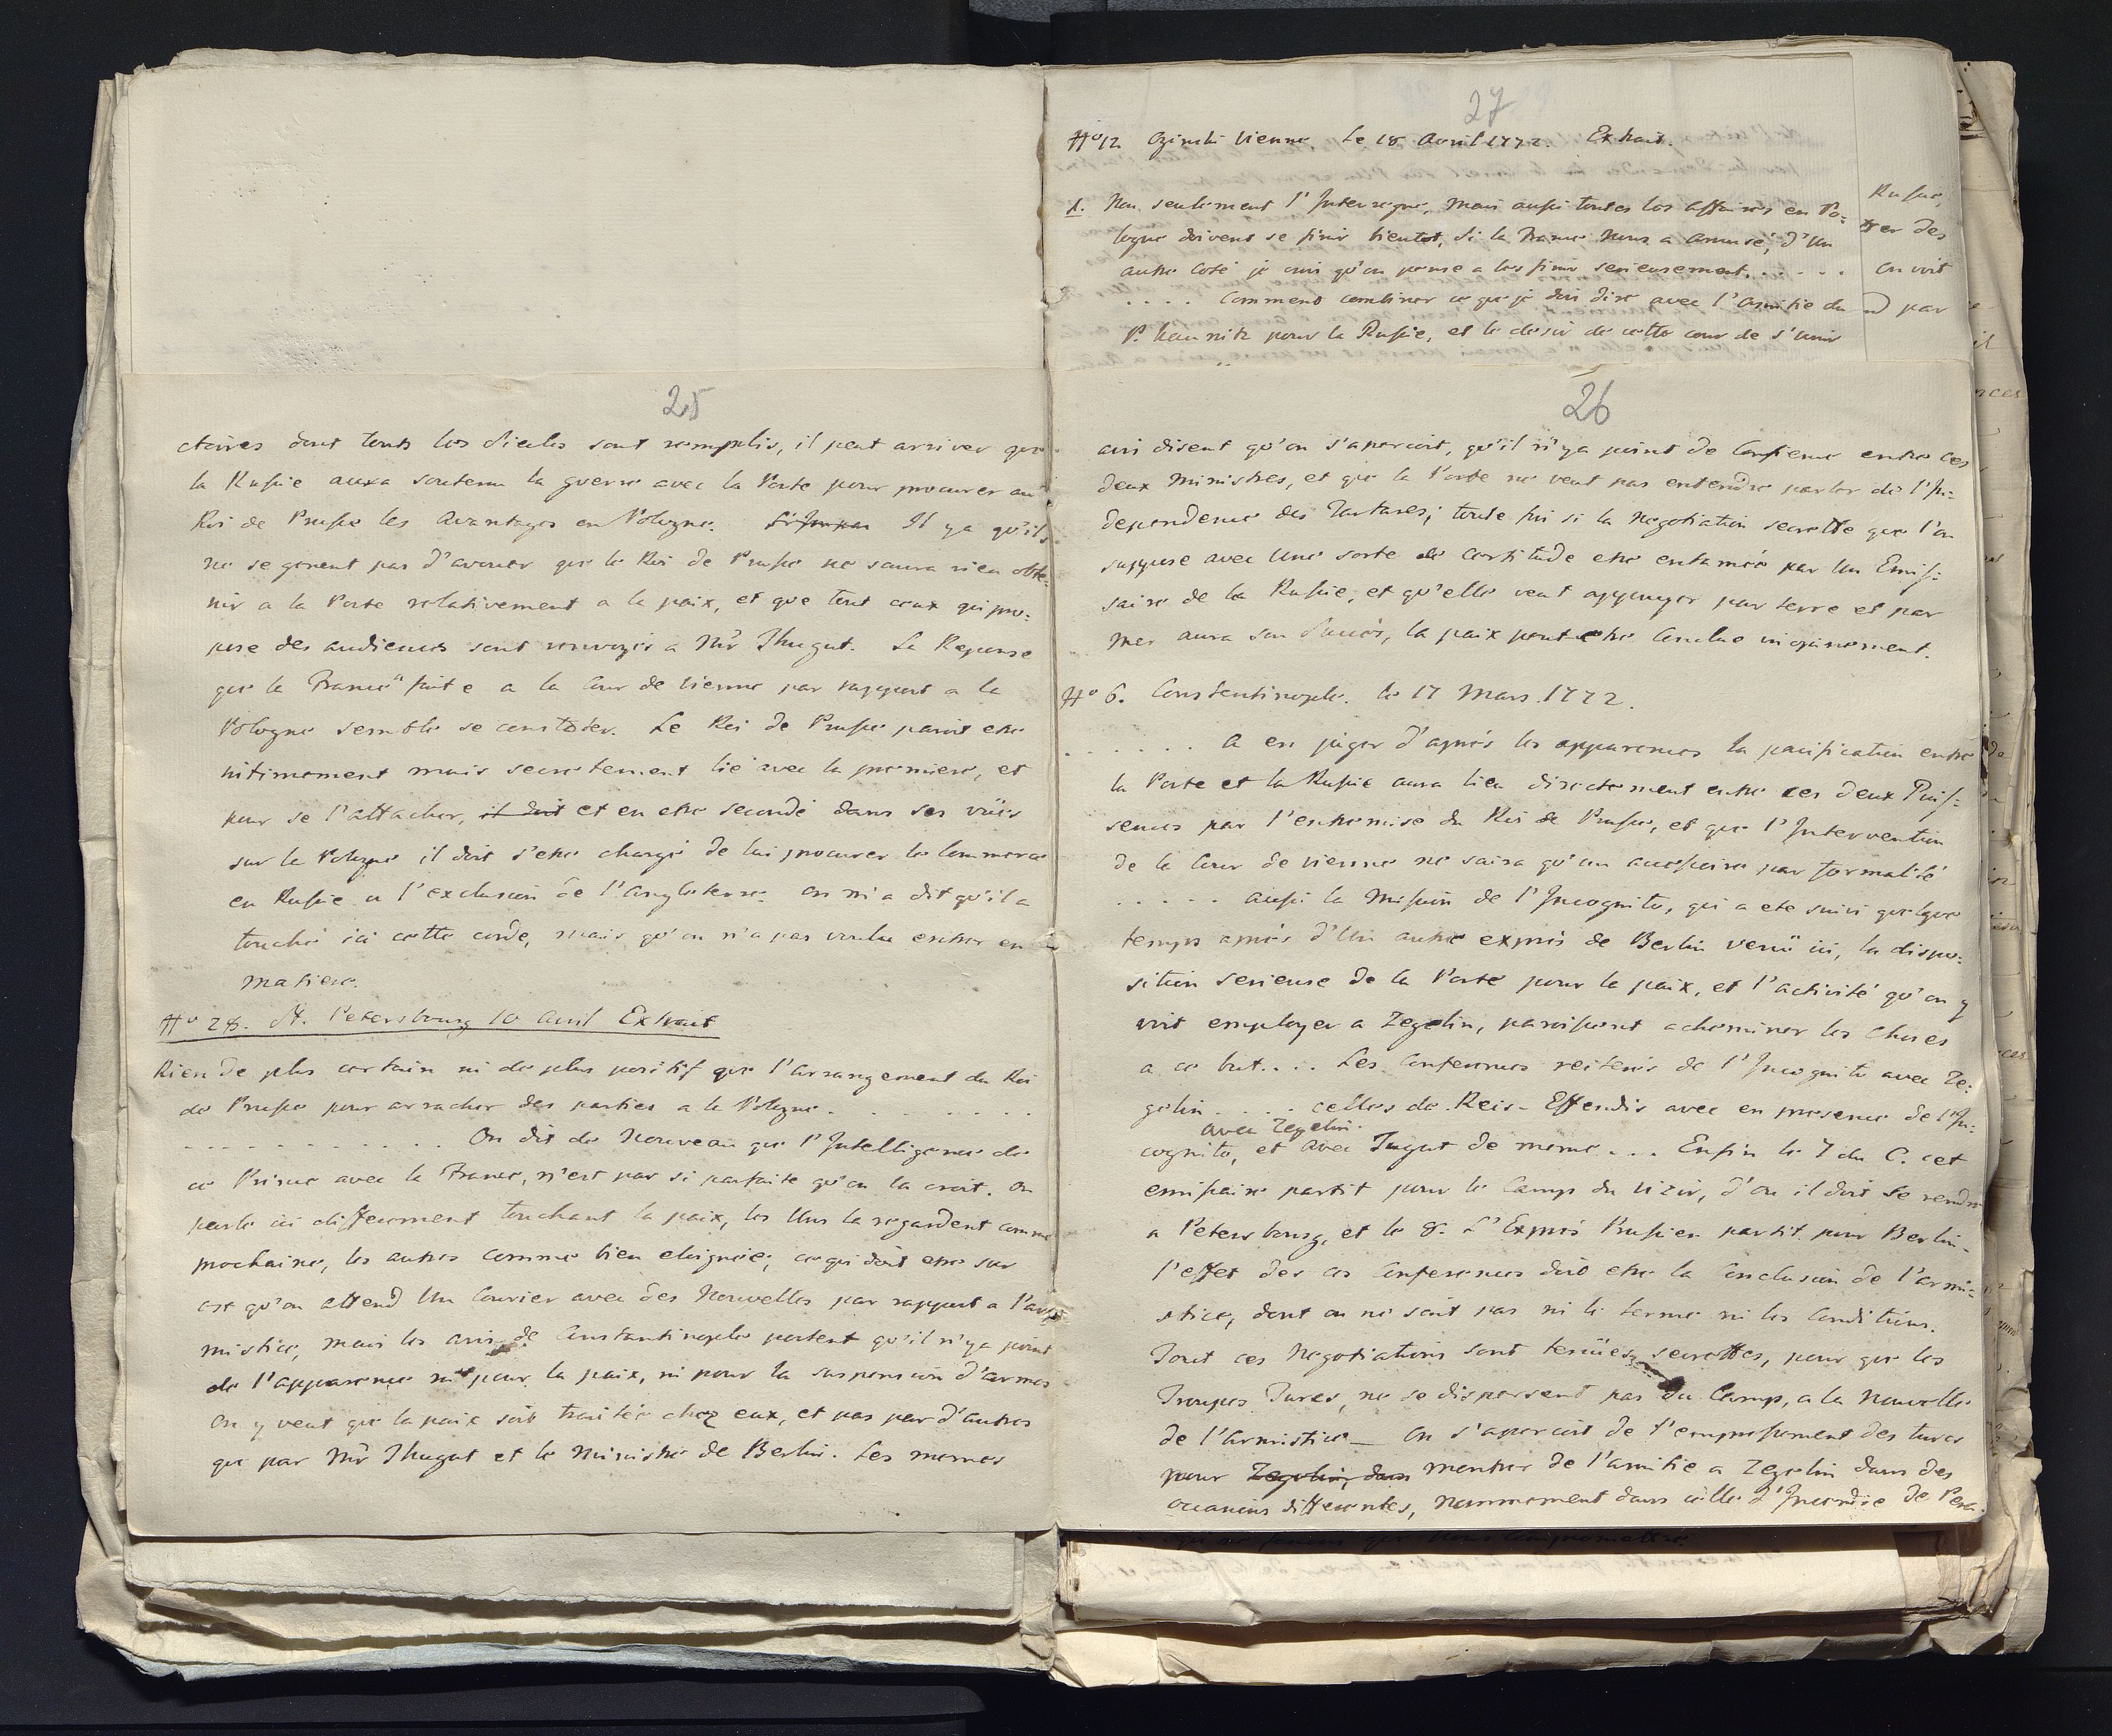 25
ctaires dont touts les Siecles sont remplis, il peut arriver que
la Russie auxa soutenu la guerre avec la Porte pour procurer au
Roi de Prusse les Avantages en Pologne. Il y a qu'ils
ne se genent pas d'avouer que le Roi de Prusse ne saura rien obte:
nir a la Porte relativement a la paix, et que tout ceux qui pro:
pose des audiences sont renvoyés a Mr Thugut. La Reponse
que la France a faite a la Cour de Vienne par rapport a la
Pologne semble se constater. Le Roi de Prusse paroit etre
intimement mais secretement lié avec la premiere, et
pour se l'attacher, il doit et en etre secondé dans ses vües
sur la Pologne il doit s'etre chargé de lui procurer le Commerce
en Russie a l'exclusion de l'Angleterre. On m'a dit qu'il a
touché ici cette corde, mais qu'on n'a pas voulu entrer en
matiere.
No 28. St. Petersbourg 10 Avril Extrait
Rien de plus certain ni de plus positif que l'arrangement du Roi
de Prusse pour arracher des parties a la Pologne. . . . . . . .
. . . . . . . . . . . . On dit de Nouveau que l'Intelligence de
ce Prince avec la France, n'est pas si parfaite qu'on la croit. On
parle ici differement touchant la paix, les Uns la regardent comme
prochaine, les autres comme bien eloignée, ce qui doit etre sur
est qu'on attend Un Courier avec des Nouvelles par rapport a l'ar
mistice, mais les avis de Constantinople portent qu'il n'y a point
de l'apparence ni pour la paix, ni pour la suspension d'armes
On y veut que la paix soit traitée chez eux, et pas par d'autres
que par Mr Thugut et le Ministre de Berlin. Les memes
27
No 12 Oginski Vienne Le 18 Avril 1772. Extrait.
1. Non seulement l'Interregne, mais aussi toutes les affaires en Po:
logne doivent se finir bientot, si la France nous a amusé, d'un
autre coté je crois qu'on pense a les finir serieusement. . . . . .
. . . . Comment combiner ce que je dois dire avec l'amitie du
P. Kaunitz pour la Russie, et le desir de cette cour de s'unir
Russie,
ter des
on voit
par
26
avis disent qu'on s'apercoit, qu'il n'y a point de Confience entre ces
deux Ministres, et que la Porte ne veut pas entendre parler de l'In:
dependence des Tartares; toute fois si la Negotiation secrette que l'on
suppose avec Une sorte de certitude etre entamée par Un Emis:
saire de la Russie, et qu'elle veut appuyer par terre et par
mer aura son Succés, la paix peut etre Conclue inopinement.
No 6. Constentinople. le 17 Mars. 1772.
. . . . . . A en juger d'aprés les apparences la pacification entre
la Porte et la Russie aura lieu directement entre ces deux Puis:
sences par l'entremise du Roi de Prusse, et que l'Intervention
de la Cour de Vienne ne saira qu'un accessoire par formalité
. . . . . aussi la Mission de l'Incognito, qui a ete suivi quelque
temps aprés d'Un autre exprés de Berlin venü ici, la dispo:
sition serieuse de la Porte pour la paix, et l'activité qu'on y
voit employer a Zegelin, paroissent acheminer les Choses
a ce but. . . . Les Conferences reiterés de l'Incognito avec Ze:
gelin . . . . celles de Reis-Effendis avec en presence de l'In:
avec Zegelin.
cognito, et avec Tugut de meme . . . Enfin le 7 du C. cet
emissaire partit pour le Camp du Vizir, d'ou il doit se rendre
a Petersbourg, et le 8. L'Exprés Prussien partit pour Berlin.
l'effet des ces Conferences doit etre la Conclusion de l'armi:
stice, dont on ne sait pas ni le terme ni les Conditions.
Tout ces Negotiations sont tenües secrettes, pour que les
Troupes Turcs, ne se dispersent pas du Camp, a la Nouvelle
de l'Armistice_ On s'apercoit de l'empressement des turcs
pour Zegelin, dans montrer de l'amitie a Zegelin dans des
occasions differentes, nommement dans celle d'Incendie de Pera